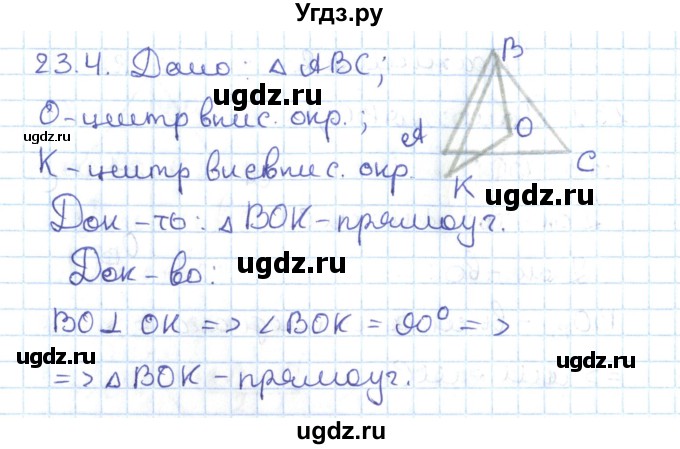 Угдз.ру
23.4. Дано: △ ABC;
ugdz.ru
О-центр впис. окр.;
К-центр вневпис. окр.
Док-ть: △ BOK-прямоуг.
Док-во:
BO⊥OK => ∠BOK = 90° =>
=> △ BOK-прямоуг.
B
A
O
C
K
ugdz.ru
ugdz.ru
ugdz.ru
ugdz.ru
ugdz.ru
ugdz.ru
ugdz.ru
ugdz.ru
ugdz.ru